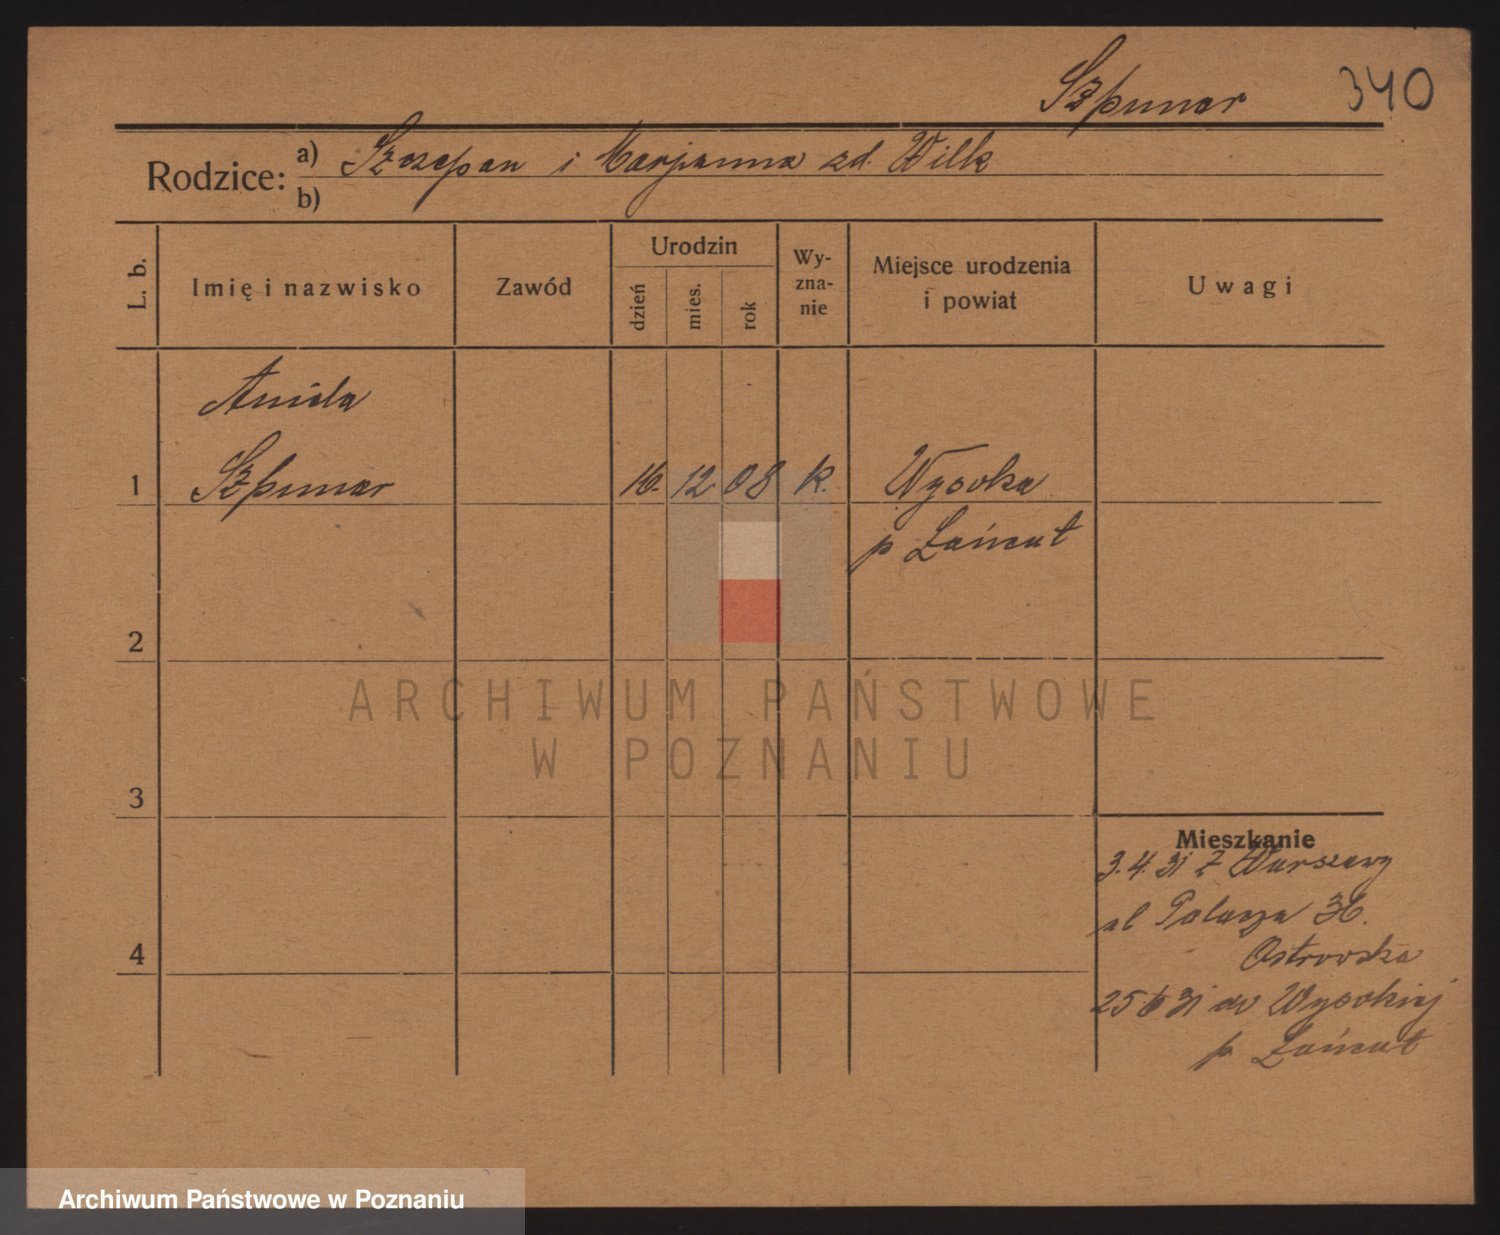 Szpunar 340
Rodzice: a) Szczepan i Marjanna zd. Wilk
b)
L. b. Imię i nazwisko Zawód Urodzin dzień mies. rok Wy-zna-nie Miejsce urodzenia i powiat Uwagi
Aniela
1 Szpunar 16. 12 08 k. Wysoka
p Łańcut
2
ARCHIWUM PAŃSTWOWE
W POZNANIU
3
Mieszkanie
3.4.31 z Warszawy
ul Palacza 36.
4 Ostrowska
25 6 31 do Wysokiej
p Łańcut
Archiwum Państwowe w Poznaniu